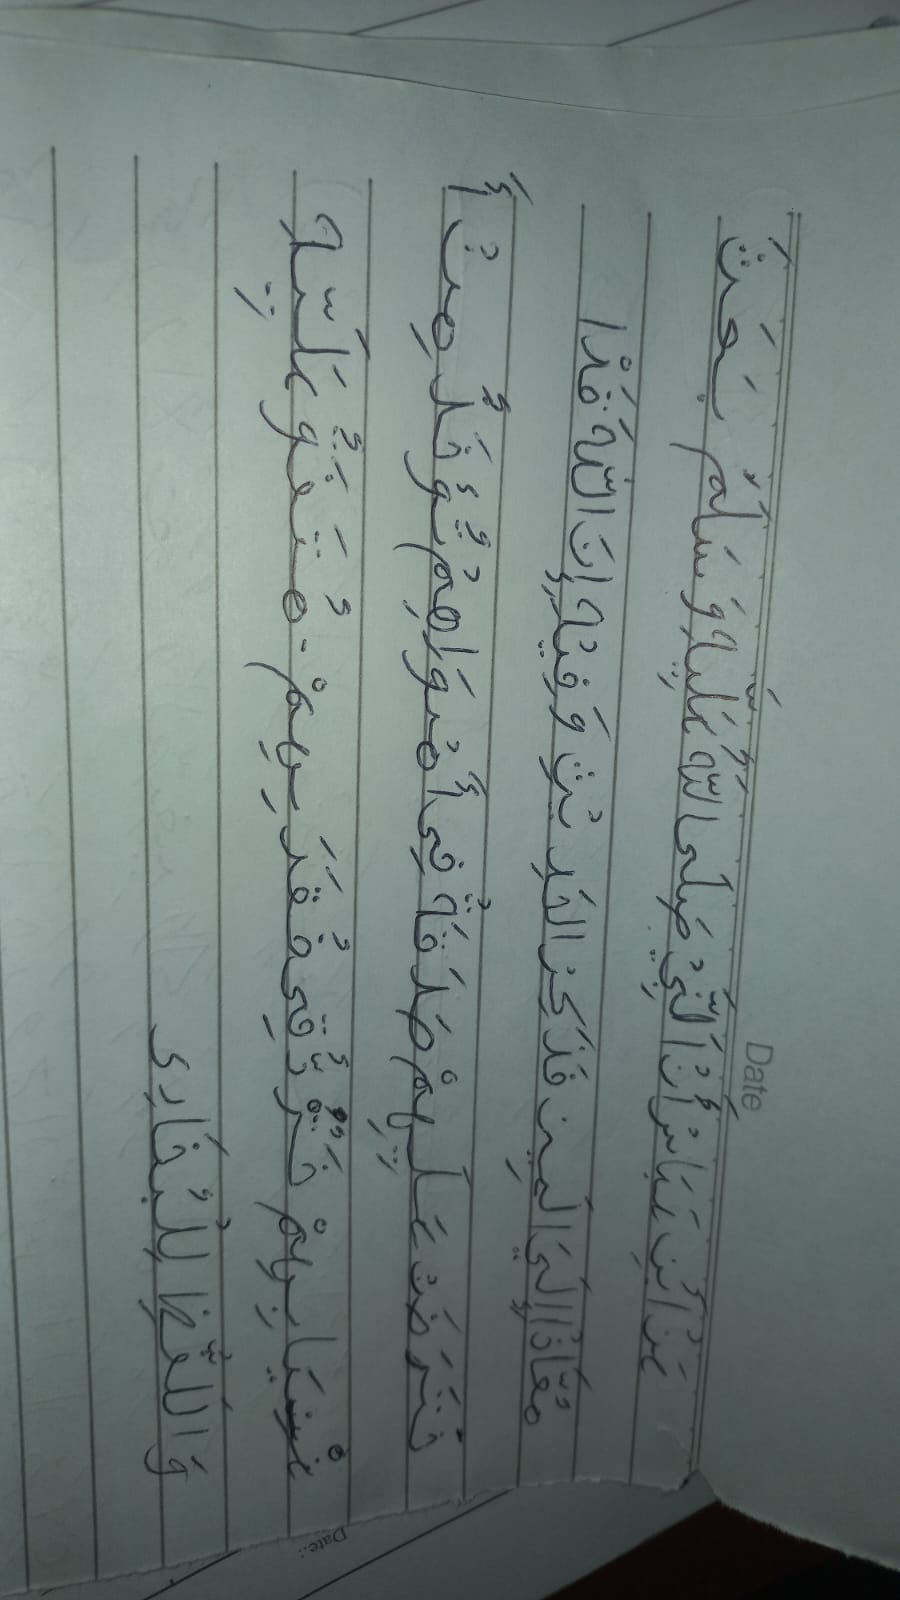 Date
عَنْ ابْنِ عَبَاسْ أَنْ اَلنَّبِيْ صَلَى اللَّهُ عَلَّيِهِ وَ سَلَمُ بَعَثَ
مُعَّاذْا إِلَيَ الَميِن فَذَكِرْ الحَدِ يْثِ وَ فِيْهِ إِنَ اللَّهَ قَدْ ا
فْتَرَضَتْ عَلَيِهِمْ صَدَقَةُ فِى أَمْوَاهِمْ تُؤْخَذُ مِنْ أَ
غْنِيَا بِهِمْ فَتُرَدُّ قِى فُقَرَبِهِمْ - مُتَفَقُ عَلَيّهِ
وَ اللَفْظِ لِلْبُخَارِى
Date: